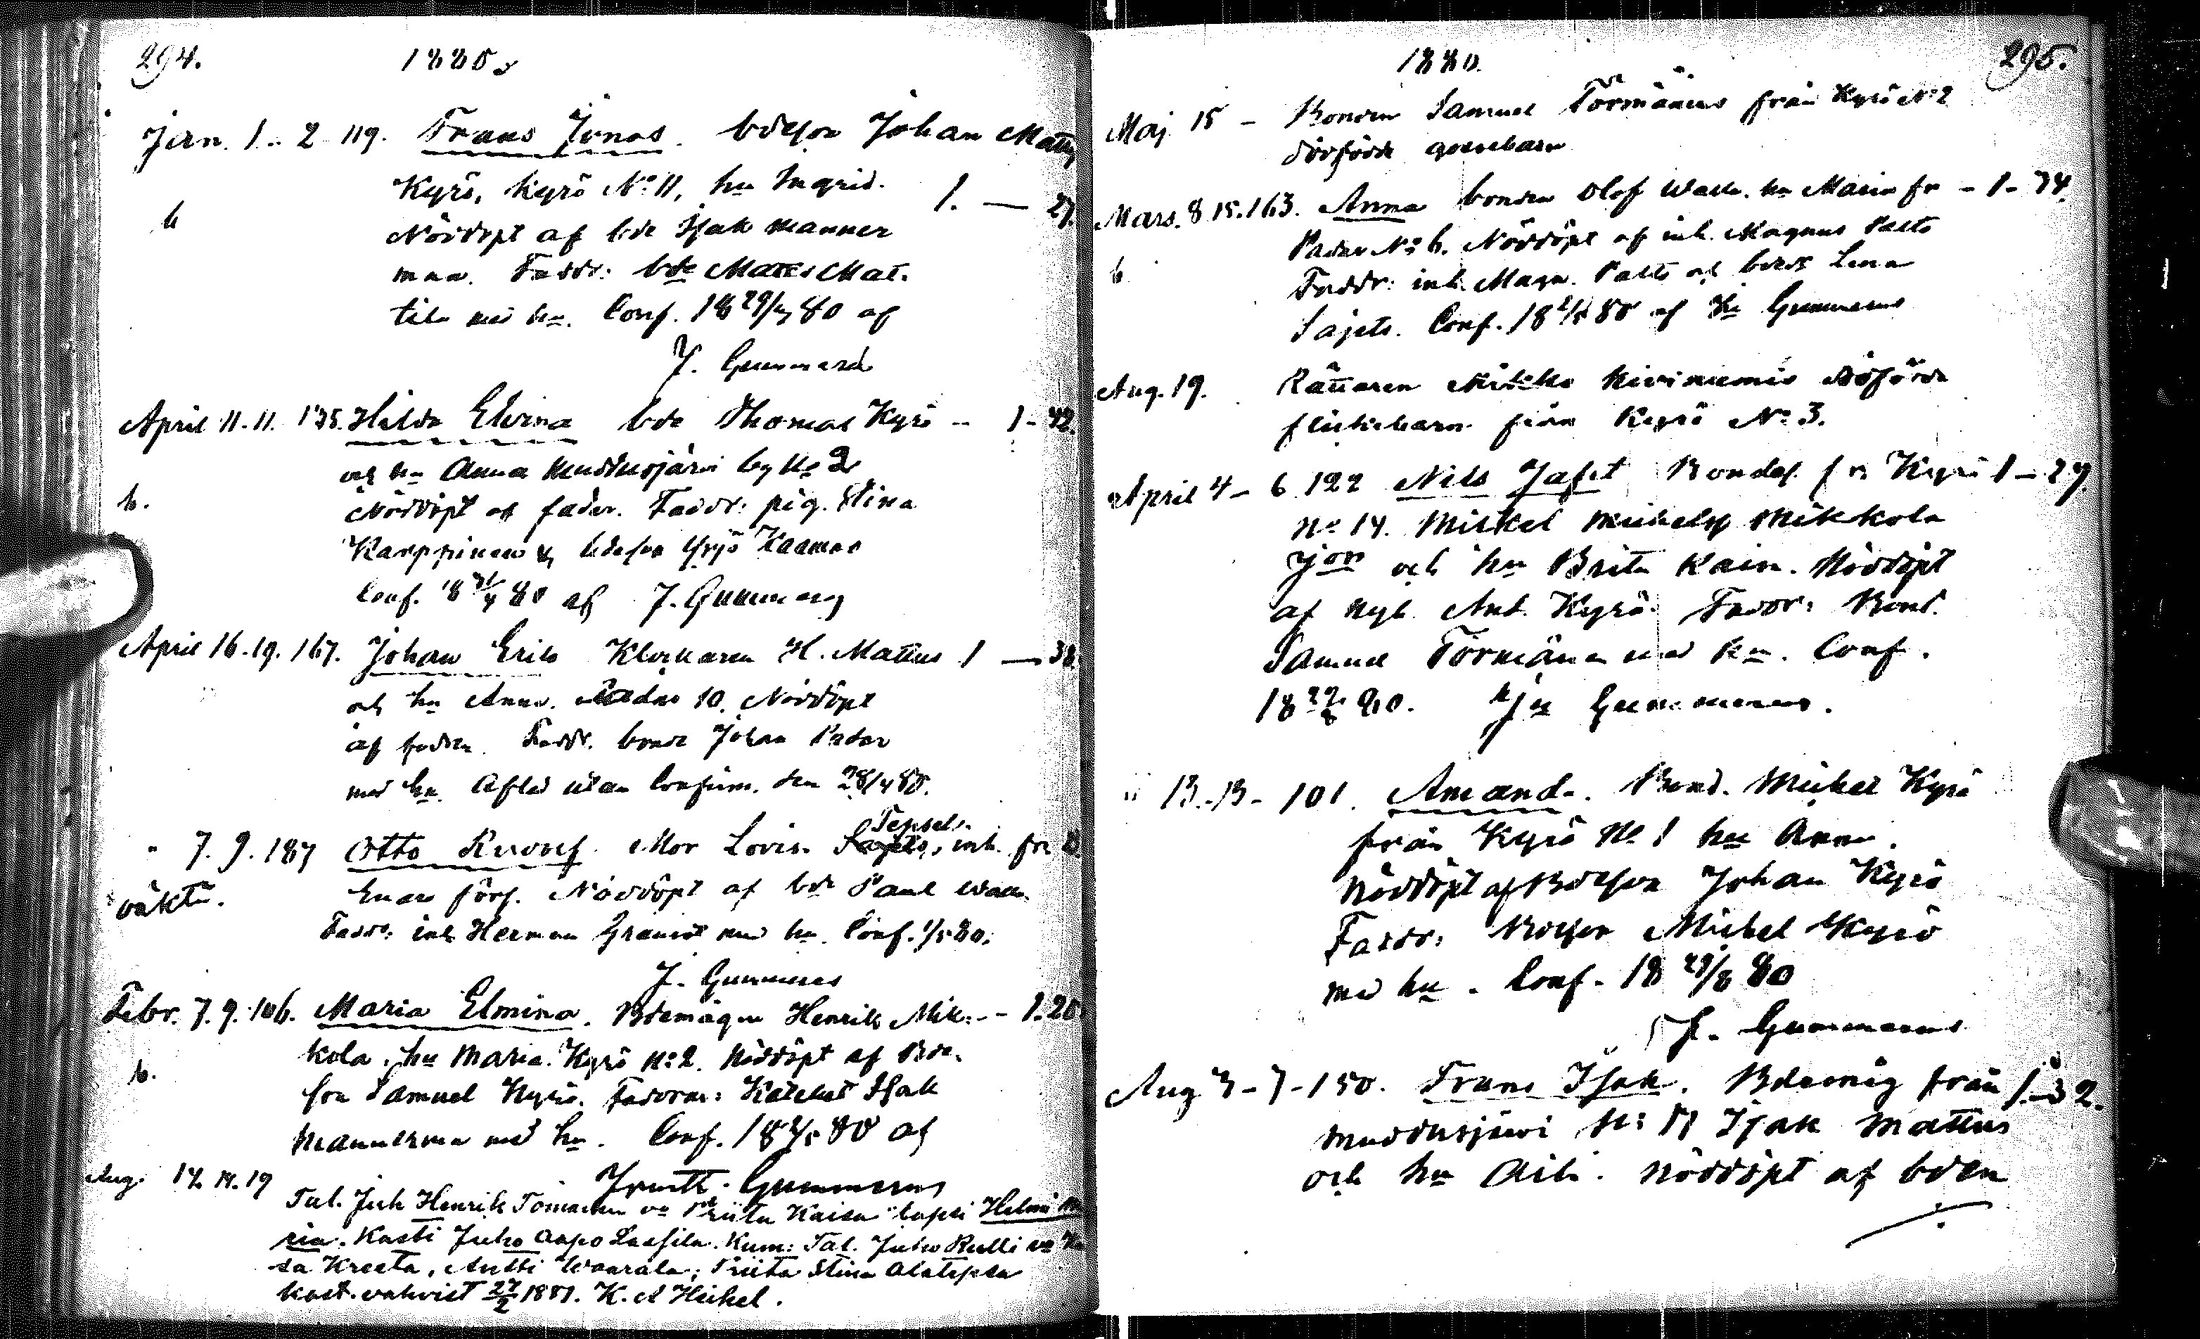 294. 1880
Jan. 1 - 2 119. Frans Jonas. bdeson Johan Matt
Kyrö, Kyrö No 11, hu Ingrid. 1. — 27.
b
Nöddöpt af bde Isak Manner
maa. Faddr: bde Mattes Mat.
tila med hu. Conf. 18 29/ 80 af
J. Gummerus
April 11. 11. 135. Hilda Elvina bde Thomas Kyrö - 1 - 42.
och hu Anna Muddusjärvi by No 2
b. Nöddöpt af fader. Faddr: pig. Stina
Karppinen & bdeson Yrjö Kaamas
Conf. 18 /4 80 af J. Gummerus
April 16. 19. 167. Johan Erik Klockaren H. Mattus 1 — 38
och hu Anna. 10. Nöddöpt
af fadren. Faddr. bonde Johan Padar
med hu. Aflad utan Confirm. den 28/4 80.
Tepsels.
" 7. 9. 187 Otto Rudolf. Mor Lovis. inh. fr
oäkta. Enare förs. Nöddöpt af bde Paul Walle.
Faddr: inh Herman Granrot med hu. Conf. 1/5 80.
J. Gummerus
Febr. 7. 9. 106. Maria Elmina. Bdemågen Henrik Mik: - - 1. 20
kola, hu Maria. Kyrö No 2. Nöddöpt af Bde.
b. son Samuel Kyrö. Faddrar: Katechet Isak
Mannermaa med hu. Conf. 18 2/5 80 af
Gummerus
Aug. 14. 14. 19 Tal. Juh Henrik Tomanen va Priita Kaisa lapsi Helmi Ma
ria. Kasti Juho Aapo Laafila. Kum: Tal. Juho Kulli va
sa Kreeta, Antti Waarala, Priita Stina Alatepsa
kast. vahvist 27/2 1881. K. A Heikel.
1880. 295.
Maj. 15 - Bonden Samuel Törmänens från Kyrö No 2
dödfödde gossebarn
Mars. 8. 15. 163. Anna bonden Olof Walle. hu Maria fr - 1 - 34.
Padar No 6. Nöddöpt af inh. Magnus Palto
b Faddr: inh. Magn. Palto och bords Lena
Sajets. Conf. 18 2/5 80 af Gummerus
Aug. 19. Rättaren Mikko Kiviniemis dödfödde
flickebarn från Kyrö No 3.
April 4 - 6 122 Nils Jafet Bondes. fr. Kyrö 1 - 27.
No 14. Mickel Michelss Mikkola
jor och hu Brita Kaisa. Nöddöpt
af nyb. And. Kyrö. Faddr: Bond.
Samuel Törmänen med hu. Conf.
18 29/8 80. Gummerus.
" 13. 13 - 101. Amanda. Bond. Michel Kyrö
från Kyrö No 1 hu Anna.
Nöddöpt af Bdeson Johan Kyrö
Faddr: Bdeson Michel Kyrö
med hu. Conf. 18 29/8 80
J. Gummerus
Aug 3 - 7 - 150. Frans Isak. Bdemåg från 1. - 32.
Muddusjärvi No 11 Isak Mattus
och hu Aili. Nöddöpt af bden